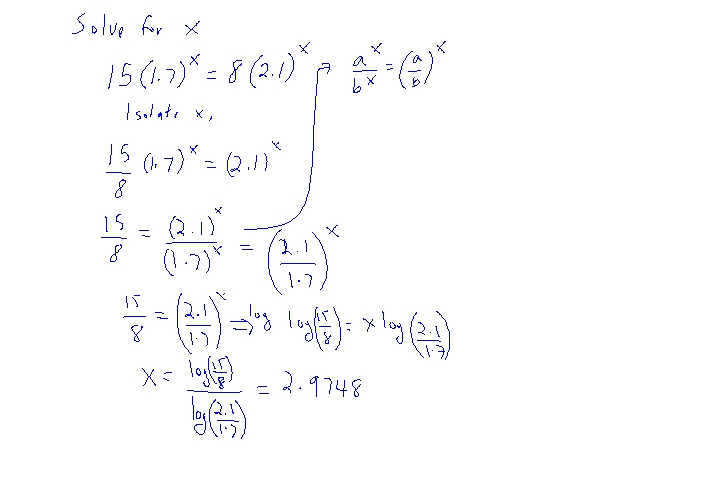 Solve for x
15(1.7)^x = 8(2.1)^x → a^x/b^x = (a/b)^x
Isolate x,
15/8 (1.7)^x = (2.1)^x
15/8 = (2.1)^x/(1.7)^x = (2.1/1.7)^x
15/8 = (2.1/1.7)^x ⇒ log log(15/8) = x log(2.1/1.7)
x = log(15/8)/log(2.1/1.7) = 2.9748